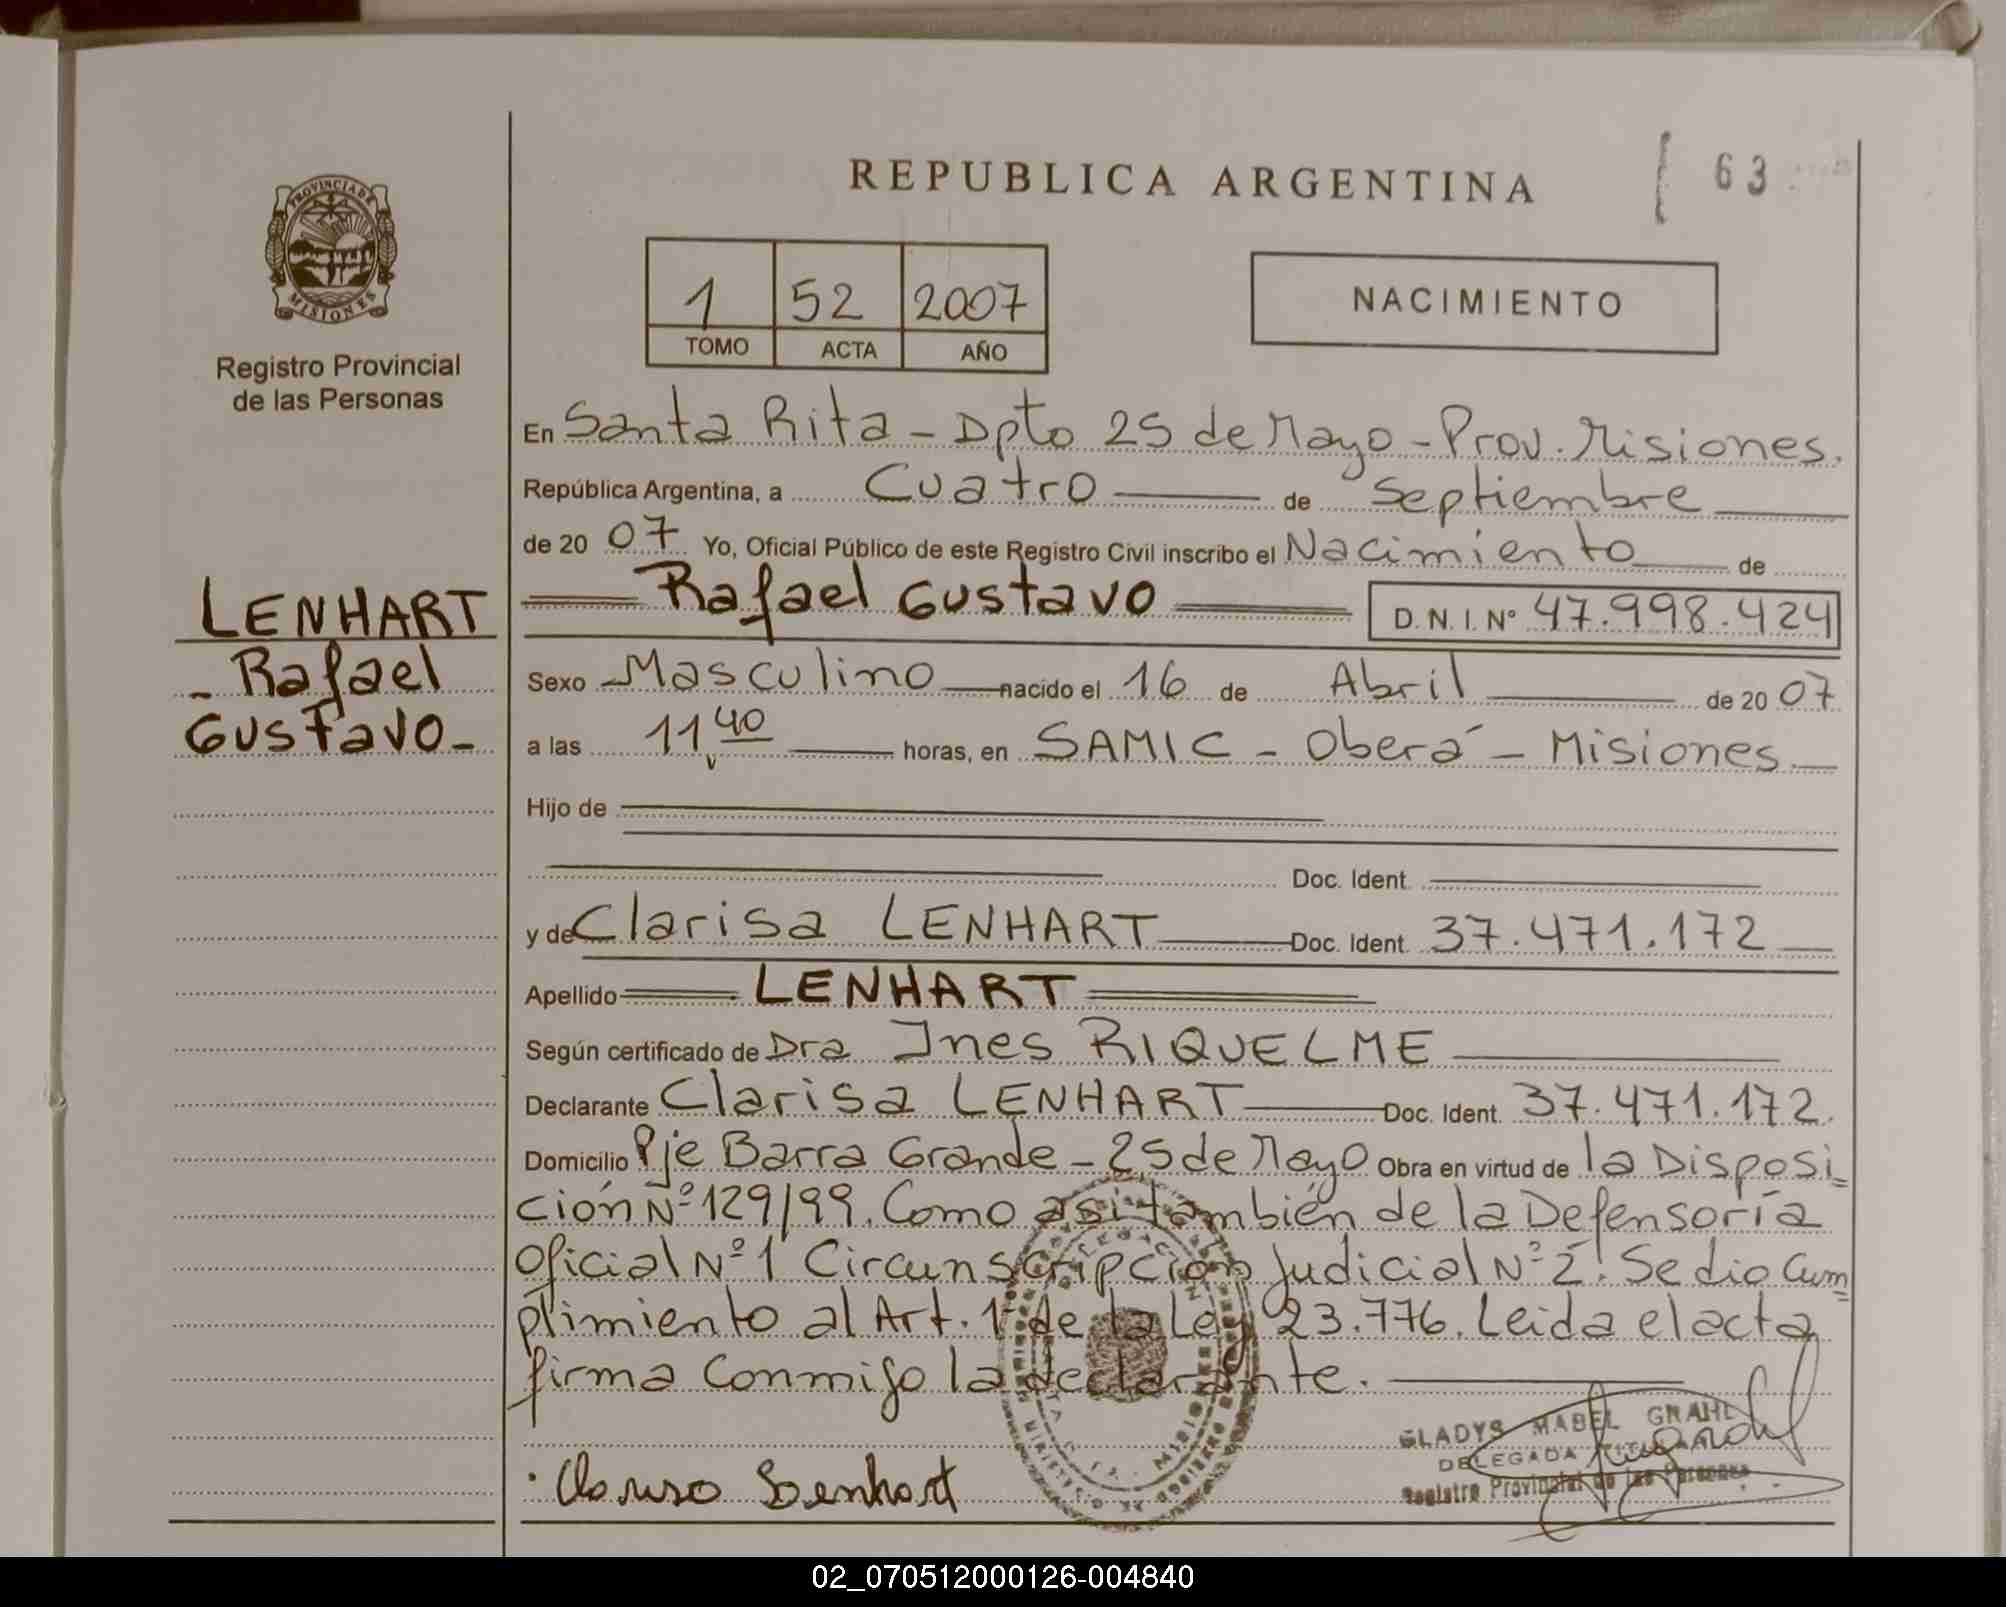 REPUBLICA ARGENTINA
63
PROVINCIA DE
MISIONES
Registro Provincial
de las Personas
1 52 2007
TOMO ACTA AÑO
NACIMIENTO
En Santa Rita - Dpto 25 de Mayo - Prov. Misiones.
República Argentina, a Cuatro de Septiembre
de 20 07 Yo, Oficial Público de este Registro Civil inscribo el Nacimiento de
Rafael Gustavo D.N.I. Nº 47.998.424
LENHART
- Rafael
Gustavo -
Sexo Masculino nacido el 16 de Abril de 20 07
a las 11 40 horas, en SAMIC - Oberá - Misiones.
Hijo de
Doc. Ident.
y de Clarisa LENHART Doc. Ident. 37.471.172
Apellido LENHART
Según certificado de Dra Ines RIQUELME
Declarante Clarisa LENHART Doc. Ident. 37.471.172.
Domicilio Pje Barra Grande - 25 de Mayo Obra en virtud de la Disposi=
ción Nº 129/99. Como así también de la Defensoría
Oficial Nº 1 Circunscripción Judicial Nº 2. Se dio Cum=
plimiento al Art. 1º de la Ley 23.776. Leida el acta
firma conmigo la declarante.
GLADYS MABEL GRAHL
DELEGADA TITULAR
Registro Provincial de las Personas
Clarisa Lenhart
02_070512000126-004840